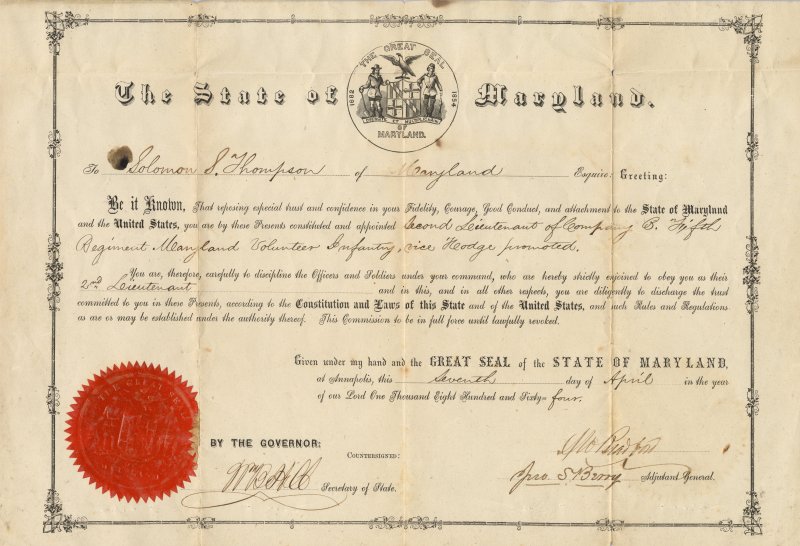 THE GREAT SEAL
1632 1854
OF
MARYLAND.
The State of Maryland.
To Solomon S. Thompson of Maryland Esquire: Greeting:
Be it Known, That reposing especial trust and confidence in your Fidelity, Courage, Good Conduct, and attachment to the State of Maryland
and the United States, you are by these Presents constituted and appointed Second Lieutenant of Company C. Fifth
Regiment Maryland Volunteer Infantry, vice Hodge promoted.
You are, therefore, carefully to discipline the Officers and Soldiers under your command, who are hereby strictly enjoined to obey you as their
2nd Lieutenant and in this, and in all other respects, you are diligently to discharge the trust
committed to you in these Presents, according to the Constitution and Laws of this State and of the United States, and such Rules and Regulations
as are or may be established under the authority thereof. This Commission to be in full force until lawfully revoked.
Given under my hand and the GREAT SEAL of the STATE OF MARYLAND,
at Annapolis, this Seventh day of April in the year
of our Lord One Thousand Eight Hundred and Sixty-four.
BY THE GOVERNOR:
COUNTERSIGNED:
Wm B Hill Secretary of State.
Jno. S. Berry Adjutant General.